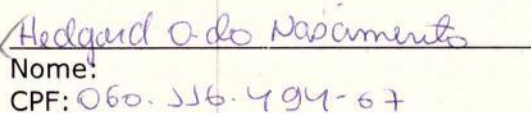 Hedgard O. do Nascimento
Nome:
CPF: 060.336.494-67